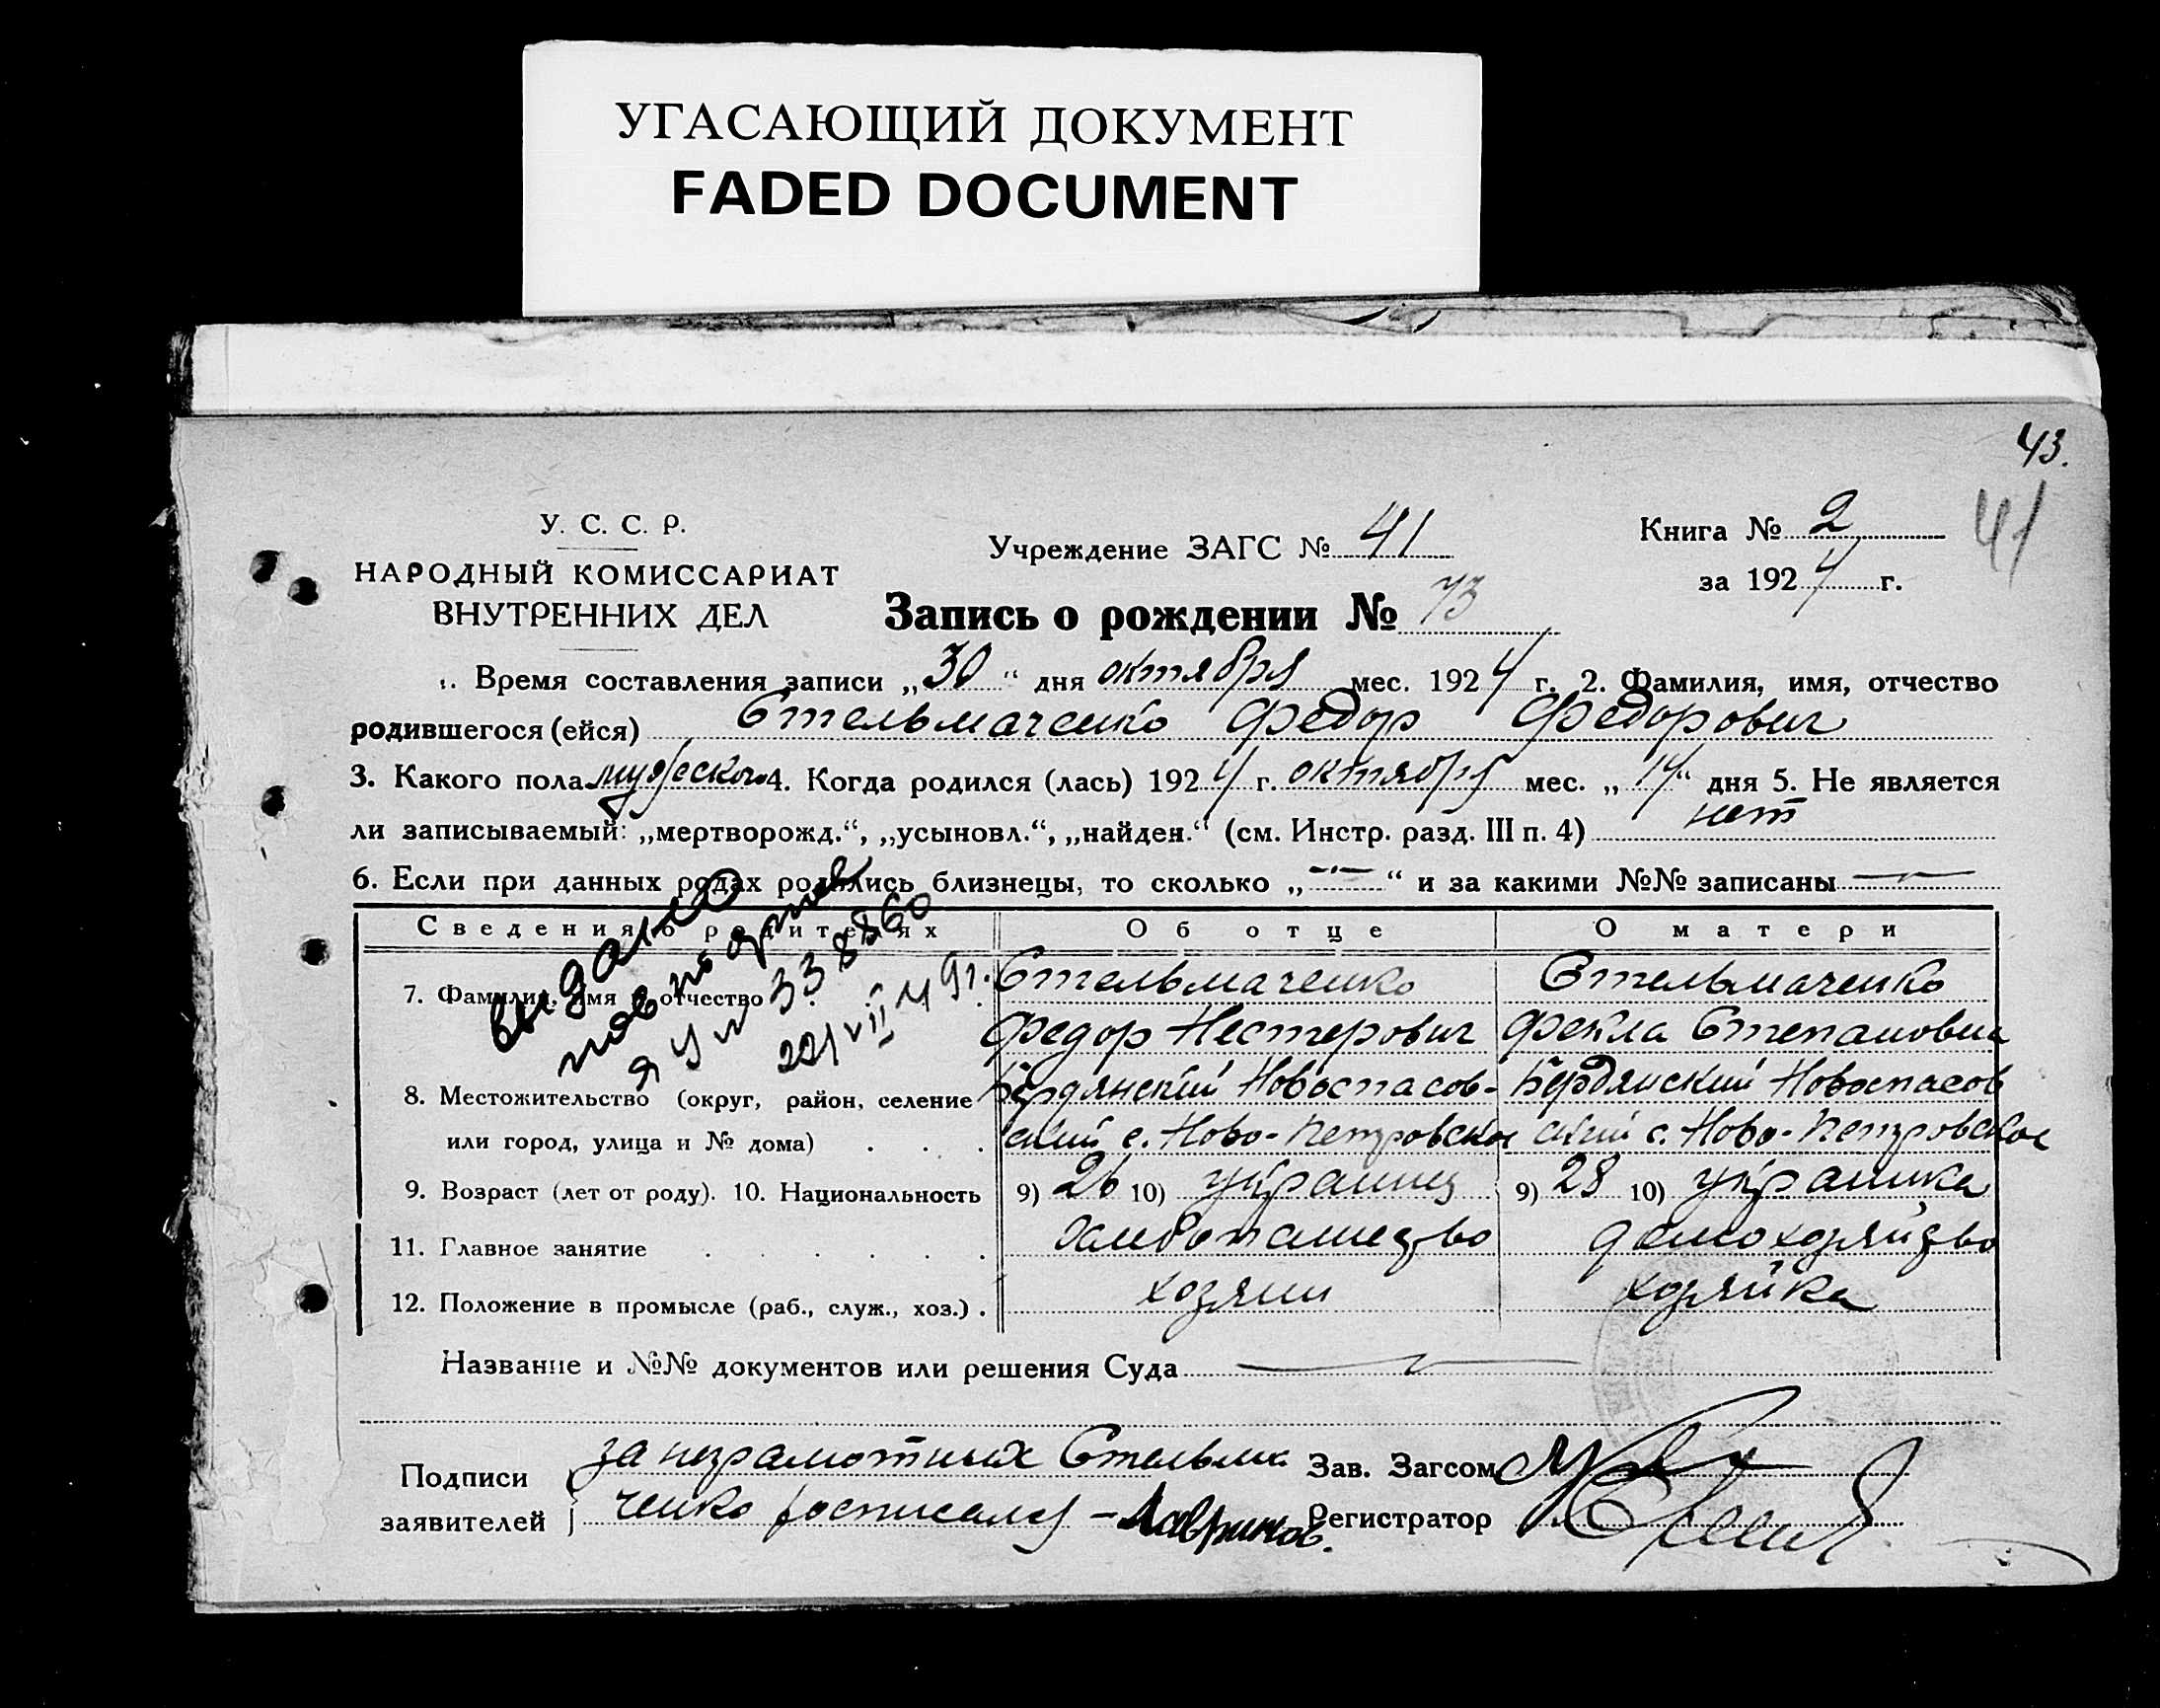 УГАСАЮЩИЙ ДОКУМЕНТ
FADED DOCUMENT
43.
41
У. С. С. Р.
НАРОДНЫЙ КОМИССАРИАТ
ВНУТРЕННИХ ДЕЛ
Учреждение ЗАГС № 41
Книга № 2
за 1924 г.
Запись о рождении № 73
1. Время составления записи „30“ дня октября мес. 1924 г. 2. Фамилия, имя, отчество
родившегося (ейся) Стельмаченко Федор Федорович
3. Какого пола мужеского 4. Когда родился (лась) 1924 г. октября мес. „14“ дня 5. Не является
ли записываемый: „мертворожд.“, „усыновл.“, „найден.“ (см. Инстр. разд. III п. 4) нет
6. Если при данных родах родились близнецы, то сколько „—“ и за какими №№ записаны —
Сведения о родителях Об отце О матери
выдано
повторное
22/VII 49г.
7. Фамилия, имя и отчество Стельмаченко Стельмаченко
Федор Нестерович Фекла Степановна
8. Местожительство (округ, район, селение Бердянский Новоспасов- Бердянский Новоспасов
или город, улица и № дома) . . . ский с. Ново-Петровское ский с. Ново-Петровское
9. Возраст (лет от роду). 10. Национальность 9) 26 10) украинец 9) 28 10) украинка
11. Главное занятие . . . . . . Хлебопашецтво домохозяйцтво
12. Положение в промысле (раб., служ., хоз.) . хозяин хозяйка
Название и №№ документов или решения Суда —
Подписи
заявителей
за неграмотных Стельма
ченко росписался - Лавринов.
Зав. Загсом
Регистратор